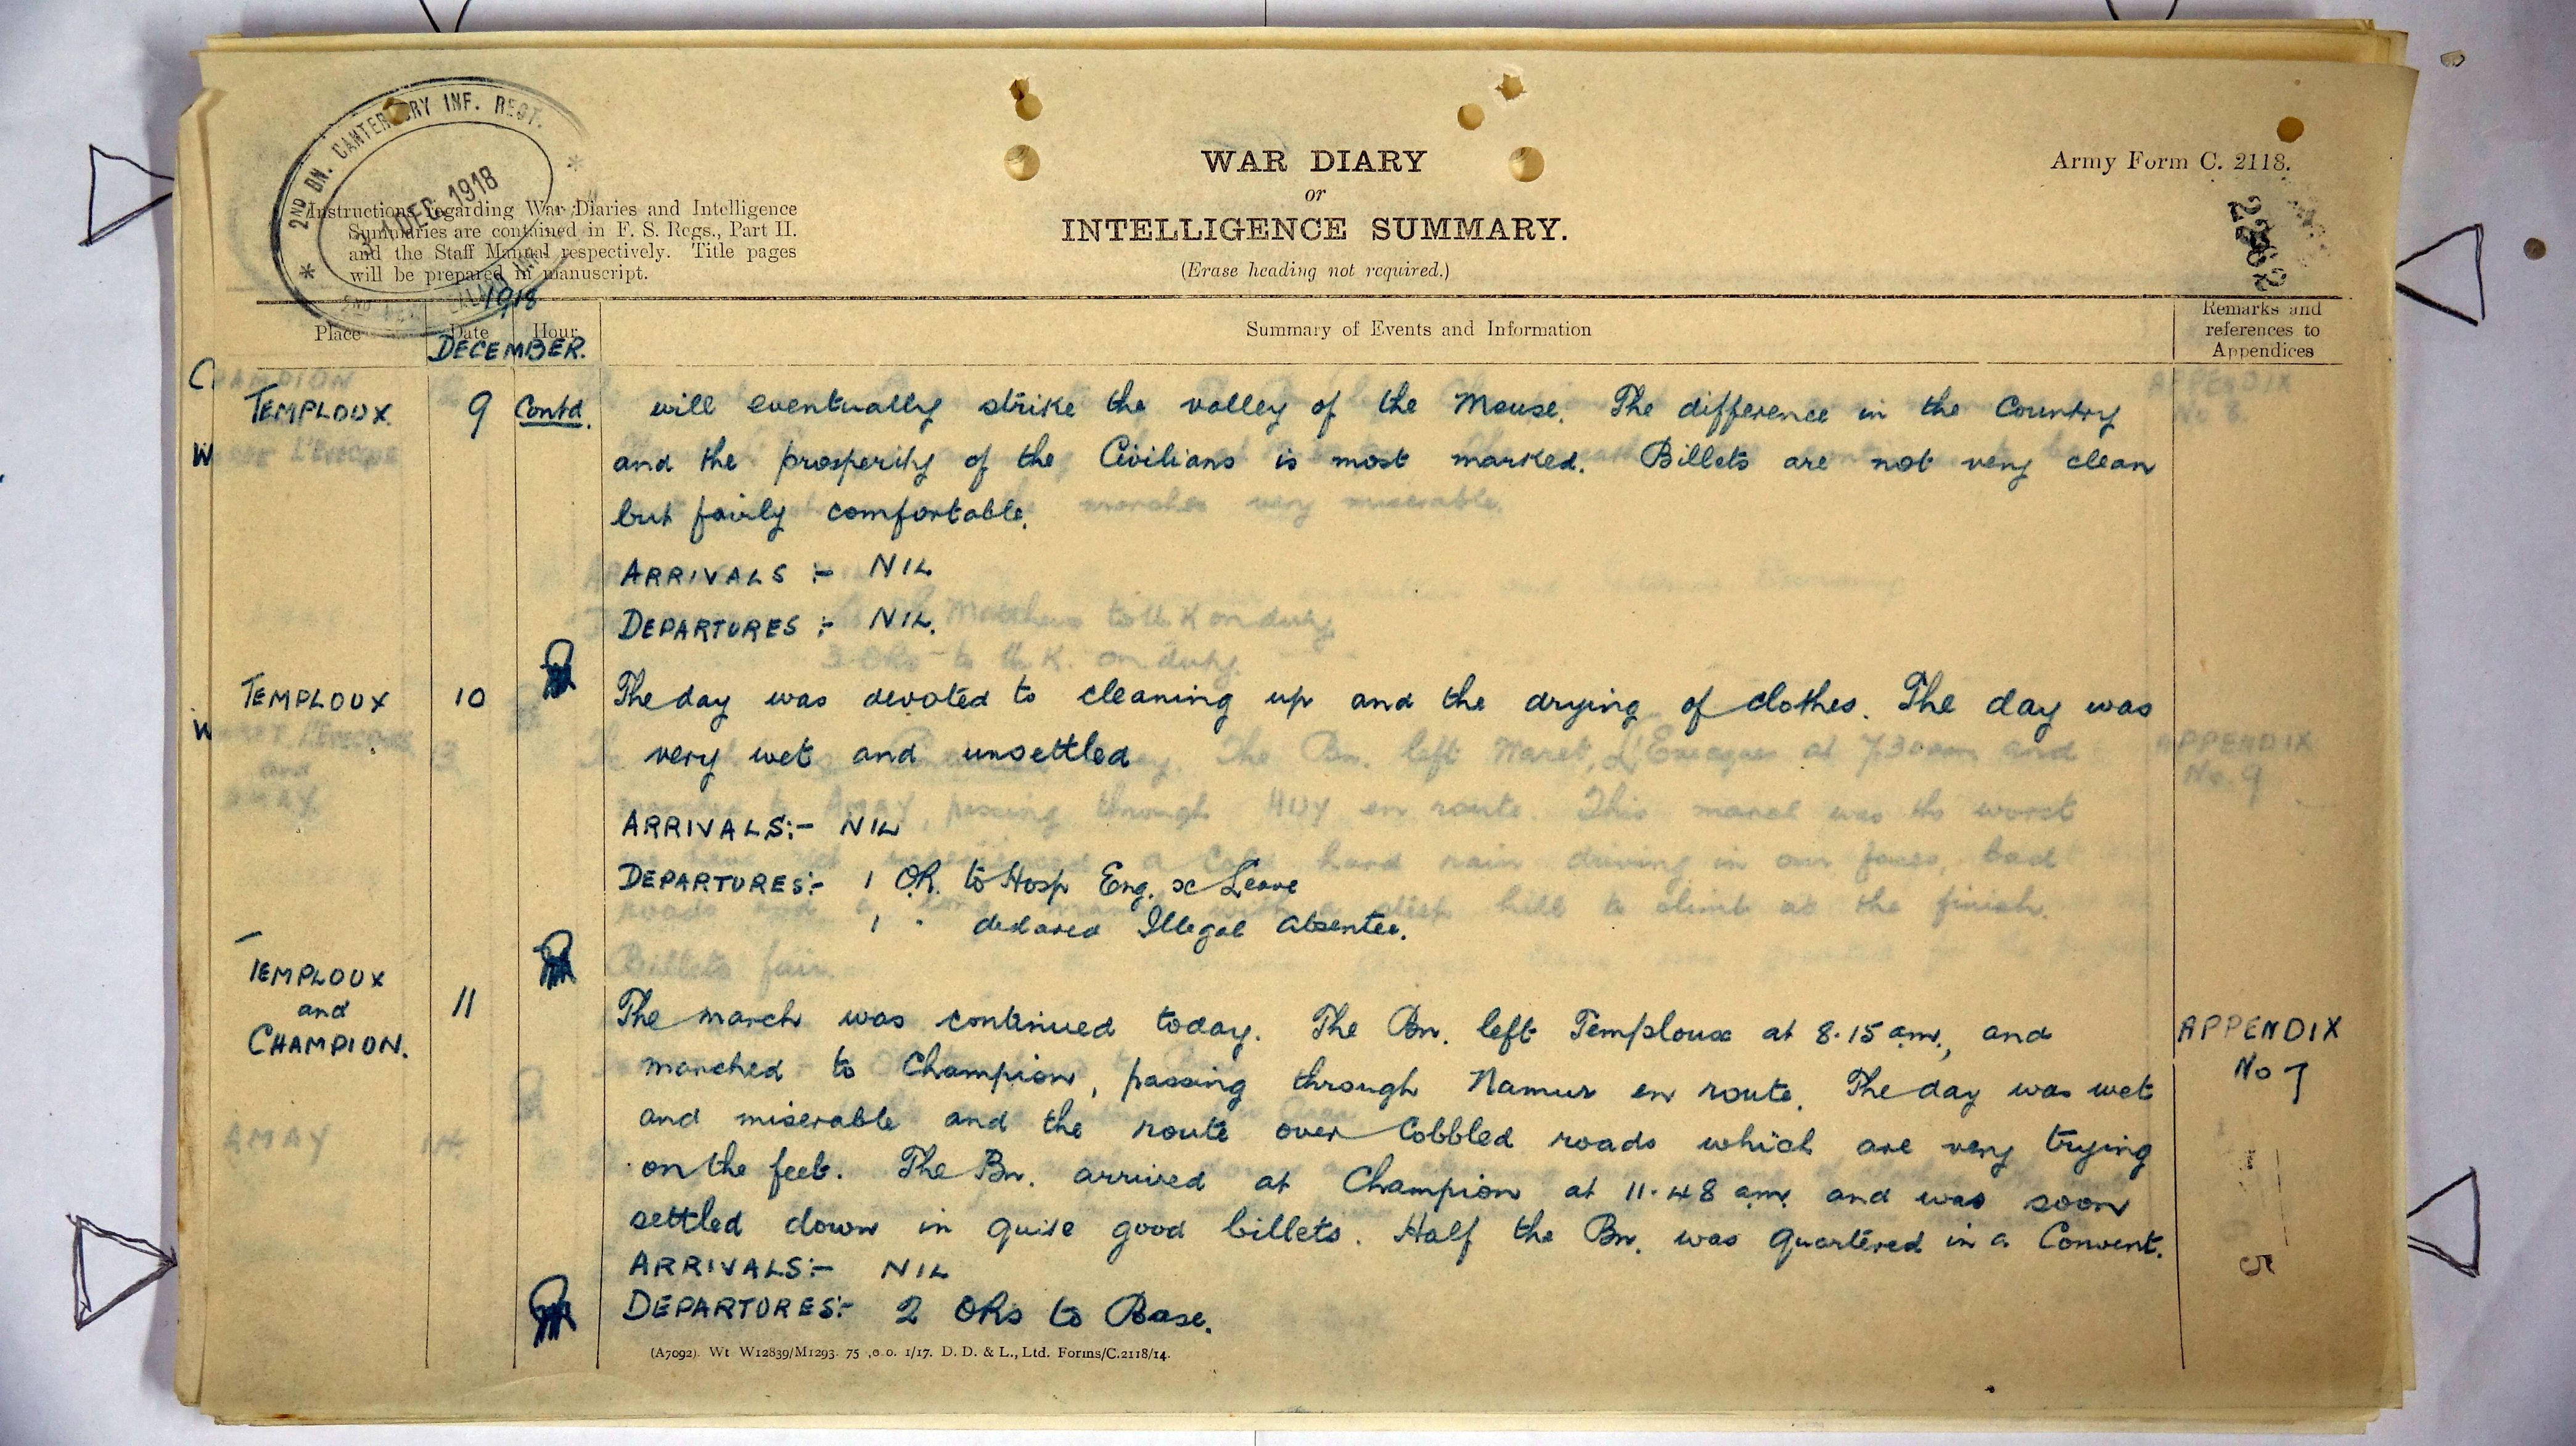 2ND BN. CANTERBURY INF. REGT.
31 DEC 1918
Instructions regarding War Diaries and Intelligence
Summaries are contained in F. S. Regs., Part II.
and the Staff Manual respectively. Title pages
will be prepared in manuscript.
WAR DIARY
or
INTELLIGENCE SUMMARY.
(Erase heading not required.)
Army Form C. 2118.
1918
Place Date Hour Summary of Events and Information Remarks and references to Appendices
DECEMBER.
TEMPLOUX. 9 Contd. will eventually strike the valley of the Meuse. The difference in the Country
and the prosperity of the Civilians is most marked. Billets are not very clean
but fairly comfortable.
ARRIVALS :- NIL
DEPARTURES :- NIL.
TEMPLOUX 10 The day was devoted to cleaning up and the drying of clothes. The day was
very wet and unsettled
ARRIVALS:- NIL
DEPARTURES:- 1 O.R. to Hosp Eng. x Leave
1 " declared Illegal Absentee.
TEMPLOUX
and
CHAMPION. 11 The march was continued today. The Bn. left Temploux at 8.15 a.m., and APPENDIX
marched to Champion, passing through Namur en route. The day was wet No 7
and miserable and the route over Cobbled roads which are very trying
on the feet. The Bn. arrived at Champion at 11.48 a.m. and was soon
settled down in quite good billets. Half the Bn. was quartered in a Convent.
ARRIVALS:- NIL
DEPARTURES:- 2 ORs to Base.
(A7092). Wt W12839/M1293. 75 ,0 0. 1/17. D. D. & L., Ltd. Forms/C.2118/14.